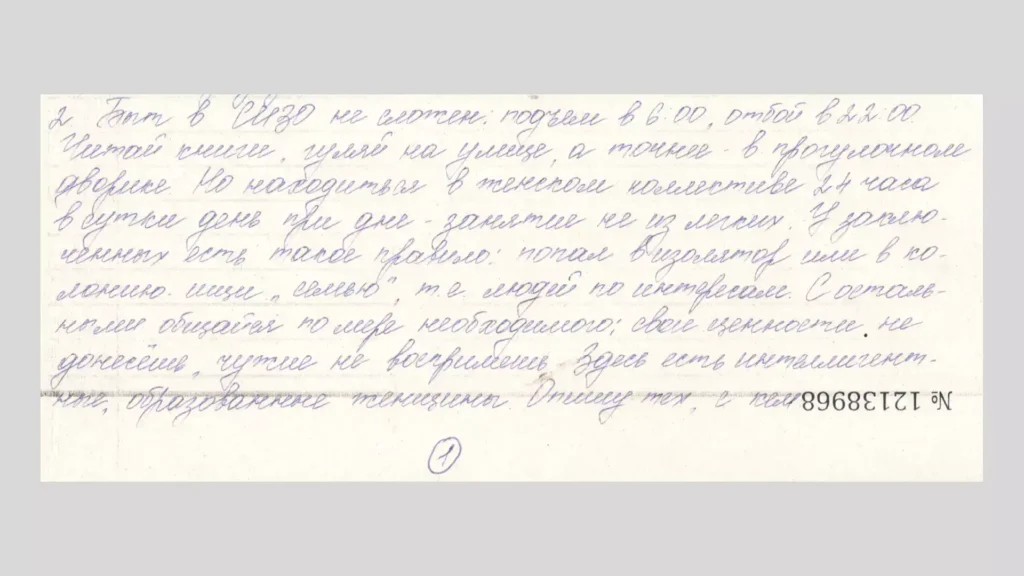 2. Быт в СИЗО не сложен: подъем в 6:00, отбой в 22:00.
Читай книги, гуляй на улице, а точнее - в прогулочном
дворике. Но находиться в женском коллективе 24 часа
в сутки день при дне - занятие не из легких. У заклю-
ченных есть такое правило: попал в изолятор или в ко-
лонию - ищи "семью", т.е. людей по интересам. С осталь-
ными общайся по мере необходимого: свои ценности не
донесёшь, чужие не воспримешь. Здесь есть интеллигент-
ные, образованные женщины. Опишу тех, с кем
№ 12138968
1